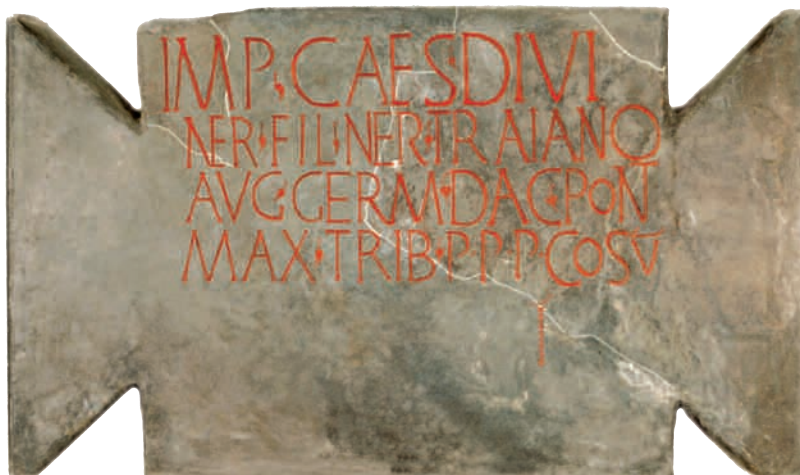 IMP·CAESDIVI
NER·FIL·NER·TRAIANO
AVG·GERM·DAC·PON
MAX·TRIB·P·P·P·COSV